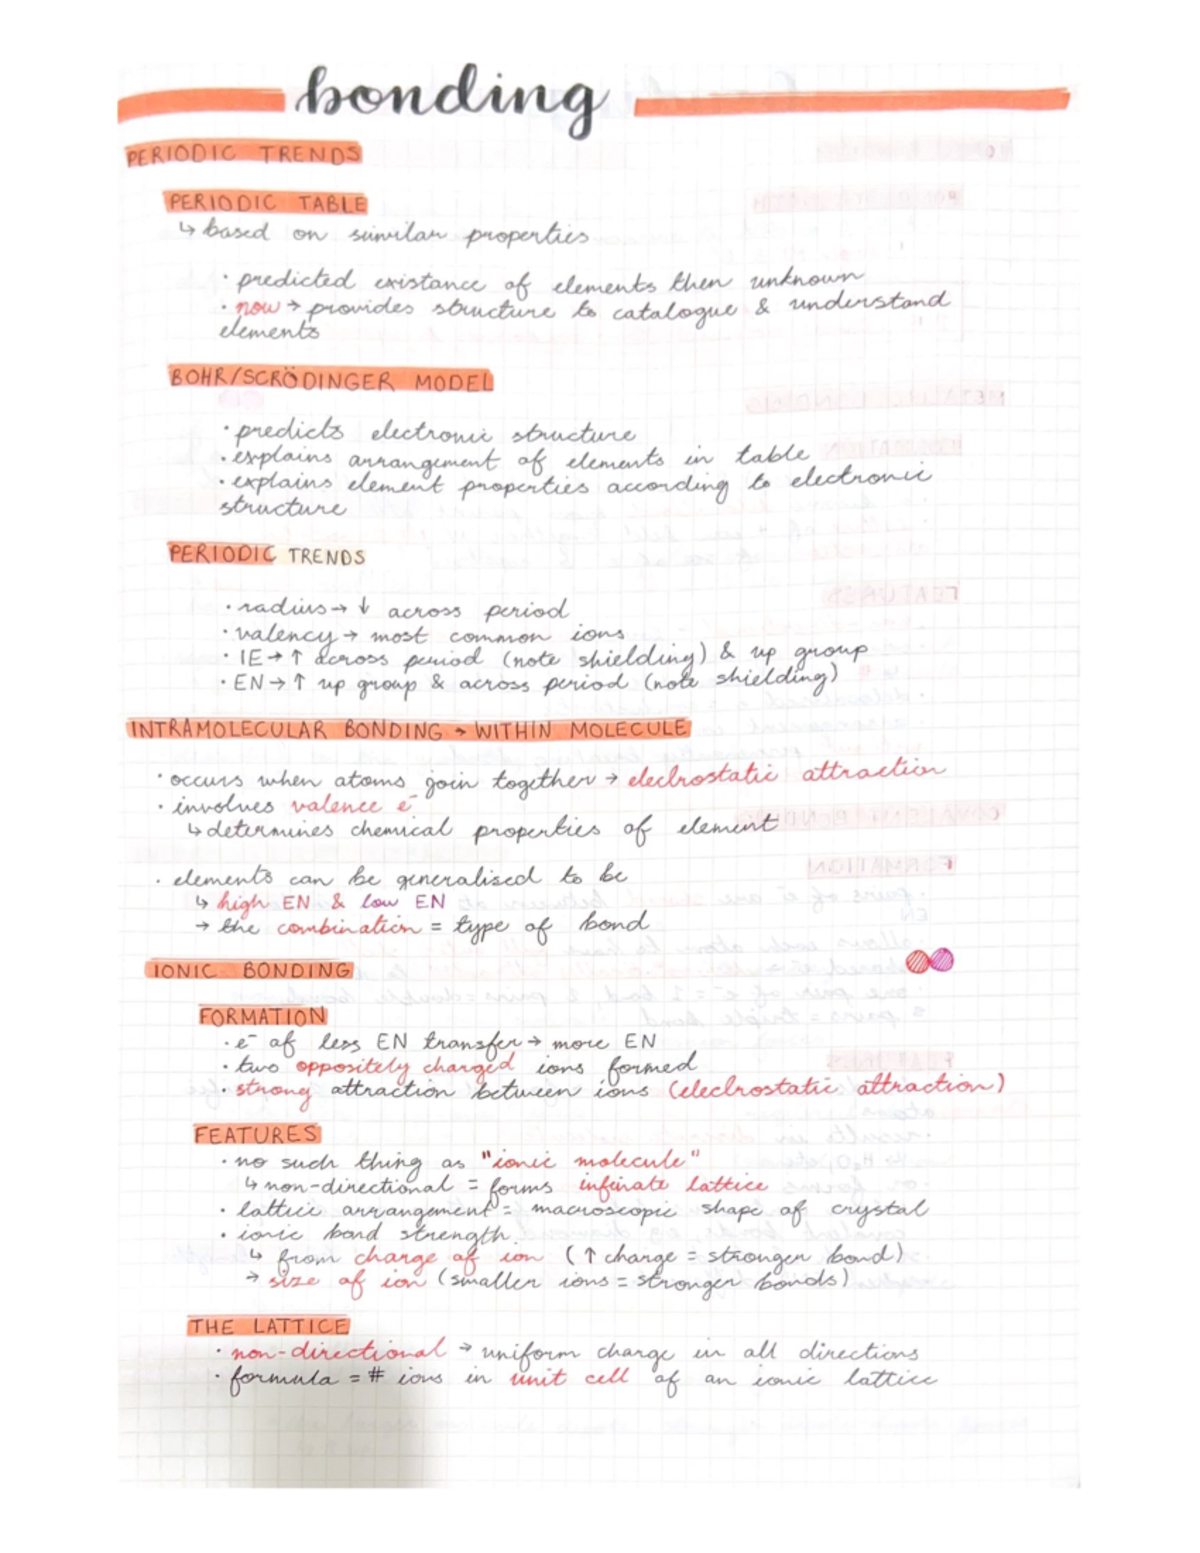 bonding
PERIODIC TRENDS
PERIODIC TABLE
↳ based on similar properties
· predicted existance of elements then unknown
· now → provides structure to catalogue & understand
elements
BOHR/SCRÖDINGER MODEL
· predicts electronic structure
· explains arrangement of elements in table
· explains element properties according to electronic
structure
PERIODIC TRENDS
· radius → ↓ across period
· valency → most common ions
· IE → ↑ across period (note shielding) & up group
· EN → ↑ up group & across period (note shielding)
INTRAMOLECULAR BONDING → WITHIN MOLECULE
· occurs when atoms join together → electrostatic attraction
· involves valence e⁻
↳ determines chemical properties of element
· elements can be generalised to be
↳ high EN & low EN
→ the combination = type of bond
IONIC BONDING
FORMATION
· e⁻ of less EN transfer → more EN
· two oppositely charged ions formed
· strong attraction between ions (electrostatic attraction)
FEATURES
· no such thing as "ionic molecule"
↳ non-directional = forms infinate lattice
· lattice arrangement = macroscopic shape of crystal
· ionic bond strength.
↳ from charge of ion (↑ charge = stronger bond)
→ size of ion (smaller ions = stronger bonds)
THE LATTICE
· non-directional → uniform charge in all directions
· formula = # ions in unit cell of an ionic lattice